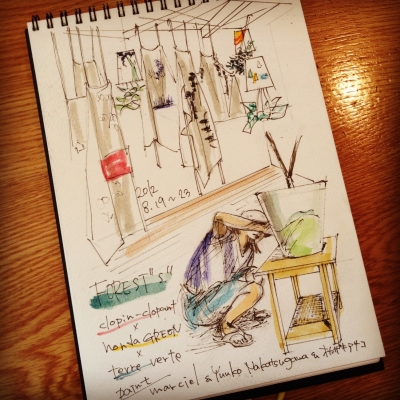 2012
8.19~23
FOREST"S"
clopin-clopant
×
honda GREEN
×
terre verte
paint marciel & Yuuko Nakatsugawa &